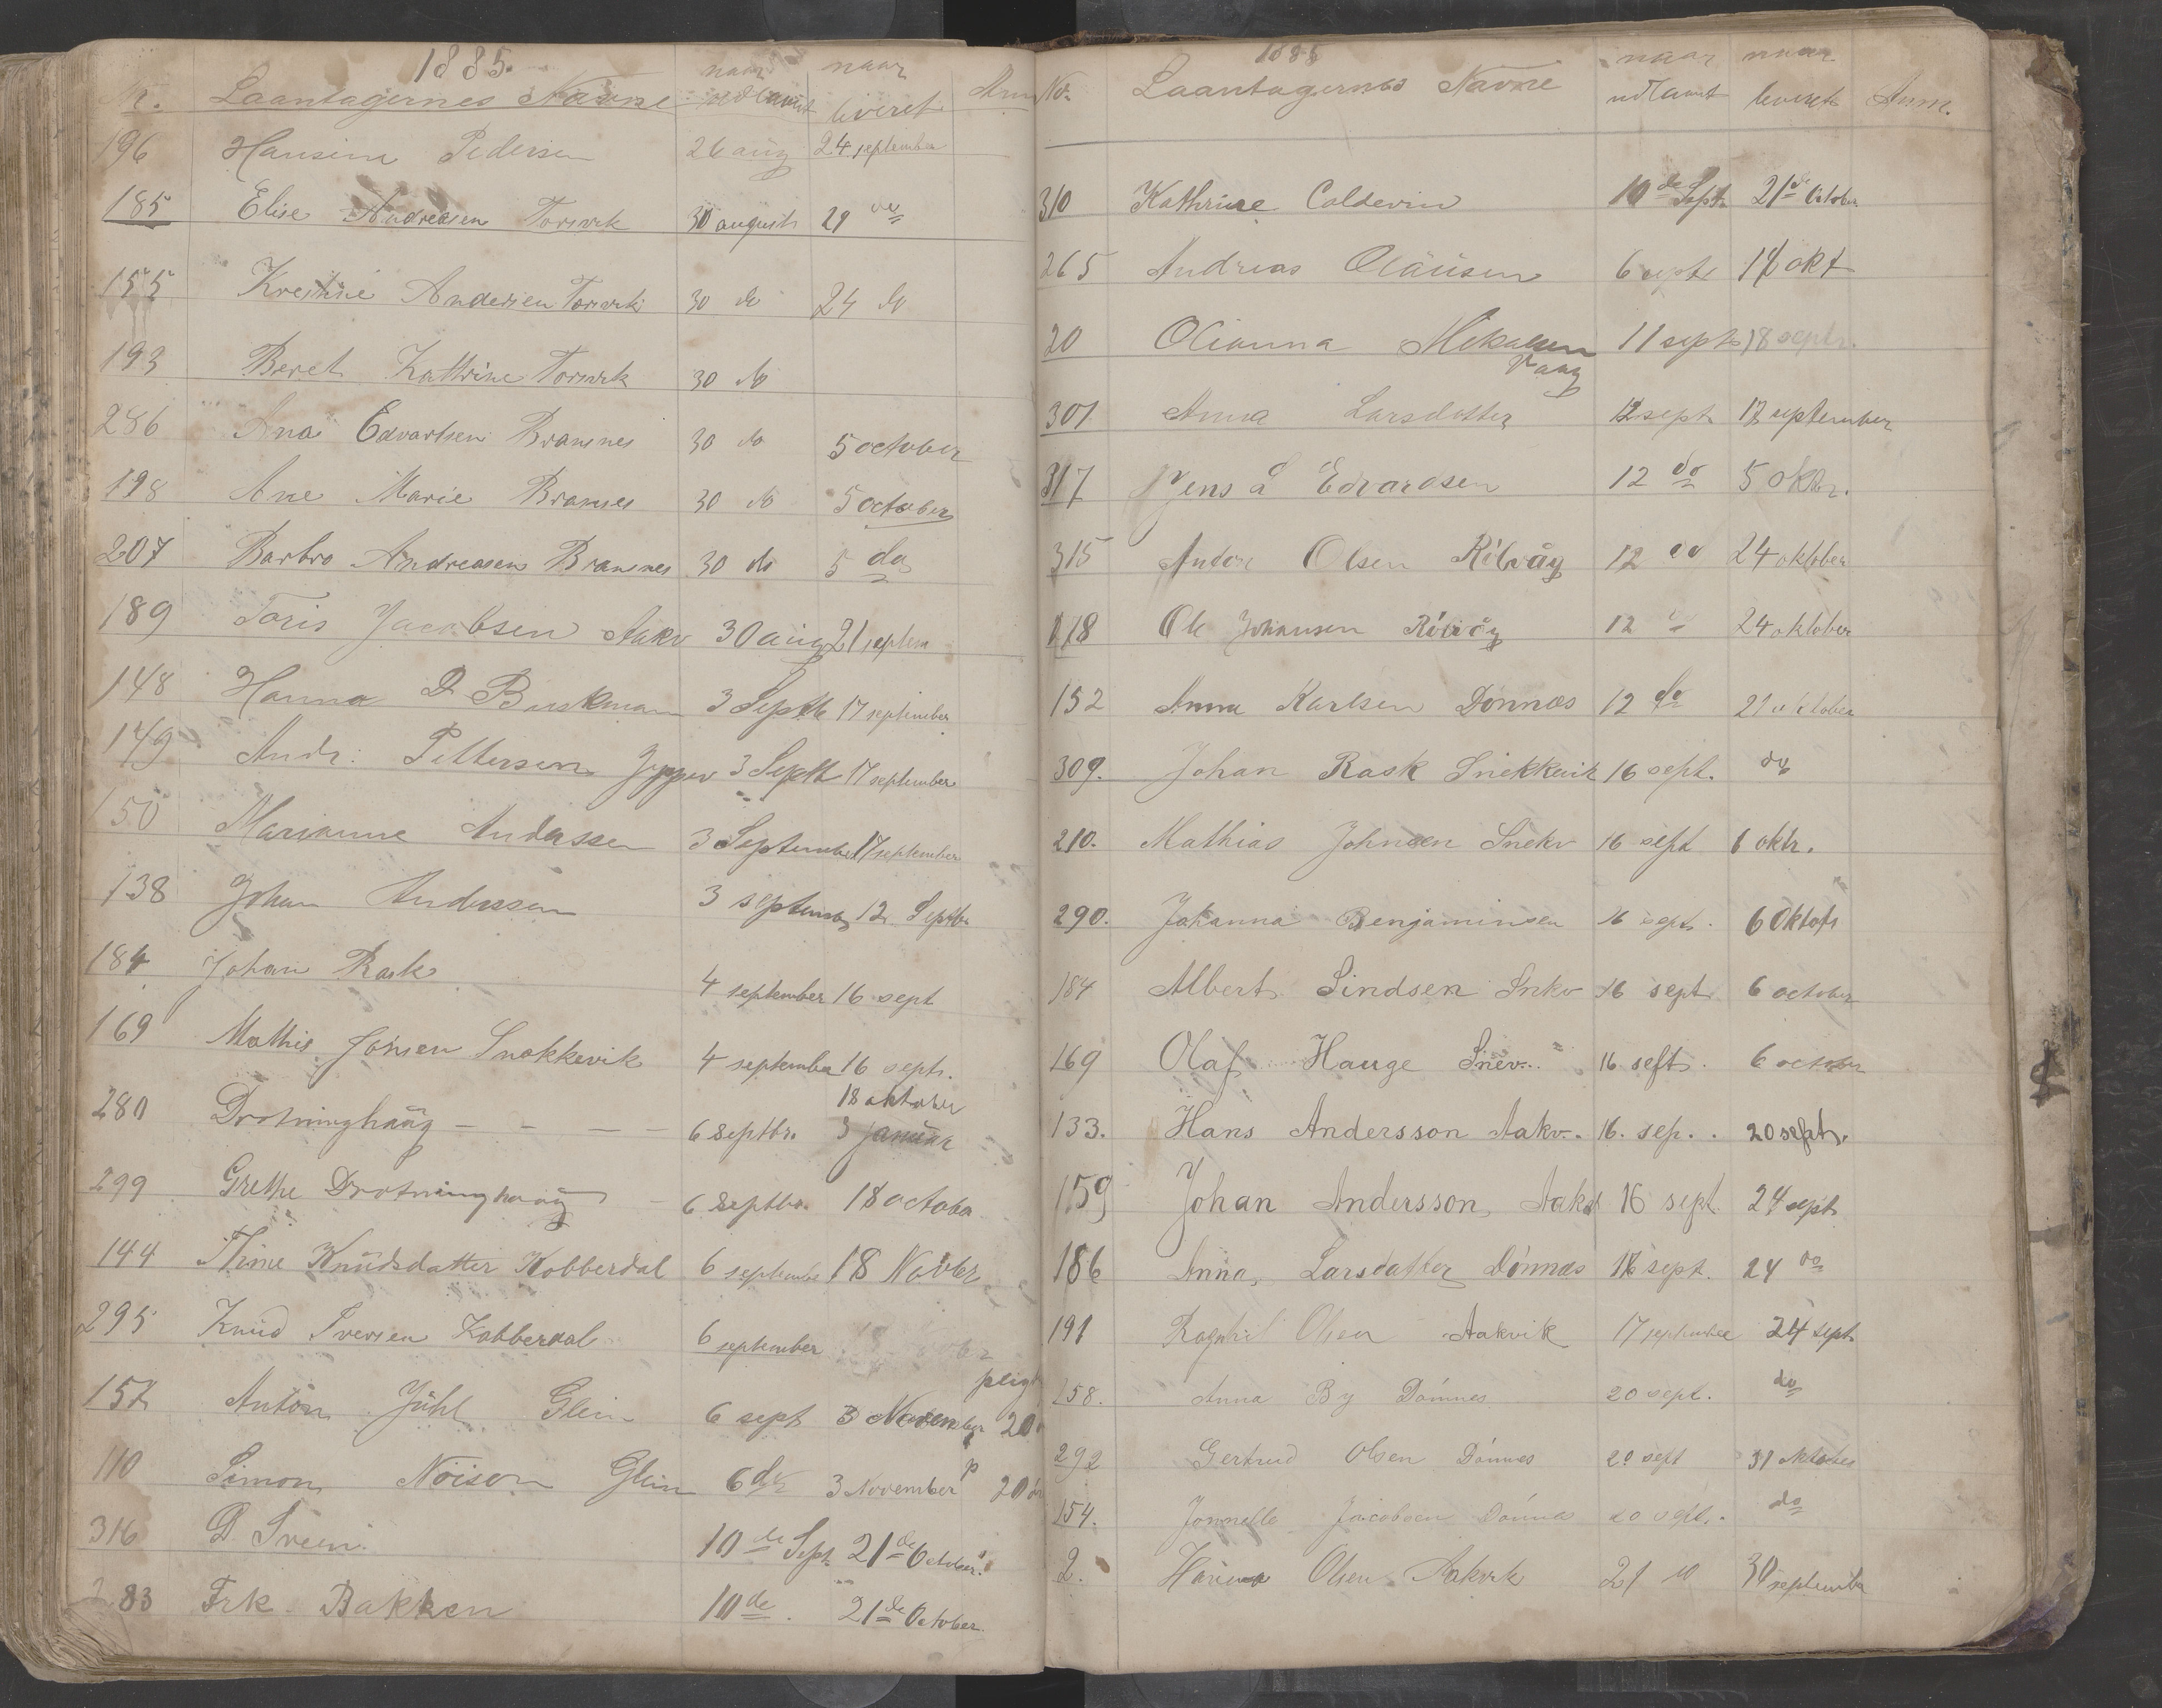 1885.
Nr. Laantagernes Navne naar udlaant naar leveret Anm
196 Hansine Pedersen 26 aug 24 september
185 Elise Andreasen Torsvik 30 august 29 do
155 Krestine Andersen Torsvik 30 do 24 do
193 Beret Kathrine Torsvik 30 do
286 Ana Edvartsen Brasnes 30 do 5 october
198 Ane Marie Brasnes 30 do 5 october
207 Barbro Andreasen Brasnes 30 do 5 do
189 Jacobsen Aakv 30 aug 21 septem
148 Hanna D. Buskman 3 Septb 17 september
149 Andr. Pettersen 3 Septb 17 september
150 Marianne Anderssen 3 September 17 september
138 Johan Anderssen 3 september 12 Septbr
184 Johan Rask 4 september 16 sept
169 Mathis Jonsen Snekkevik 4 september 16 septr.
18 oktober
280 Drotninghaug - - - - 6 Septbr. 3 januar
299 Grethe Drotninghaug - 6 Septbr. 18 october
144 Stine Knudsdatter Kobberdal 6 september 18 Novbr
295 Knud Iversen Kobberdal 6 september
157 Anton Juhl Glein 6 sept 3 November pligt 20
110 Simon Glein 6 do 3 November p 20
316 D. Sveen. 10de Sept. 21de October.
283 Frk. Bakken 10de. 21de October.
1885
No. Laantagernes Navne naar udlaant naar leveret Anm.
310 Kathrine Colderin 10de Sept. 21de October
265 Andreas Olausen 6 sept 17 okt
20 Olianna Mikalsen Vaag 11 sept 18 septr.
301 Anna Larsdatter 12 sept 17 september
317 Jens L Edvardsen 12 do 5 oktbr.
315 Andor Olsen Rølvåg 12 do 24 oktober
118 Ole Johansen Rølvåg 12 do 24 oktober
152 Anna Karlsen Dønnæs 12 do 21 oktober
309. Johan Rask Snekkevik 16 sept. do
210. Mathias Johnsen Snekv 16 sept 6 oktr.
290. Johanna Benjaminsen 16 sept. 6 Oktobr
184 Albert Lindsen Snkv 16 sept. 6 october
169 Olaf Hauge Snev.. 16 sept. 6 october
133. Hans Andersson Aakv. 16. sep. . 20 sept.
159 Johan Andersson, Aakv 16 sept. 24 sept.
186 Anna, Larsdatter Dønnæs 16 sept. 24 do
191 Ragnhil Olsen Aakvik 17 september 24 sept
158. Anna By Dønnes 20 sept. do
292 Gertrud Olsen Dønnes 20 sept 31 oktober
154. Jacobsen Dønnæs 20 sept. do
2. Olsen Aakvik 21 do 30 september